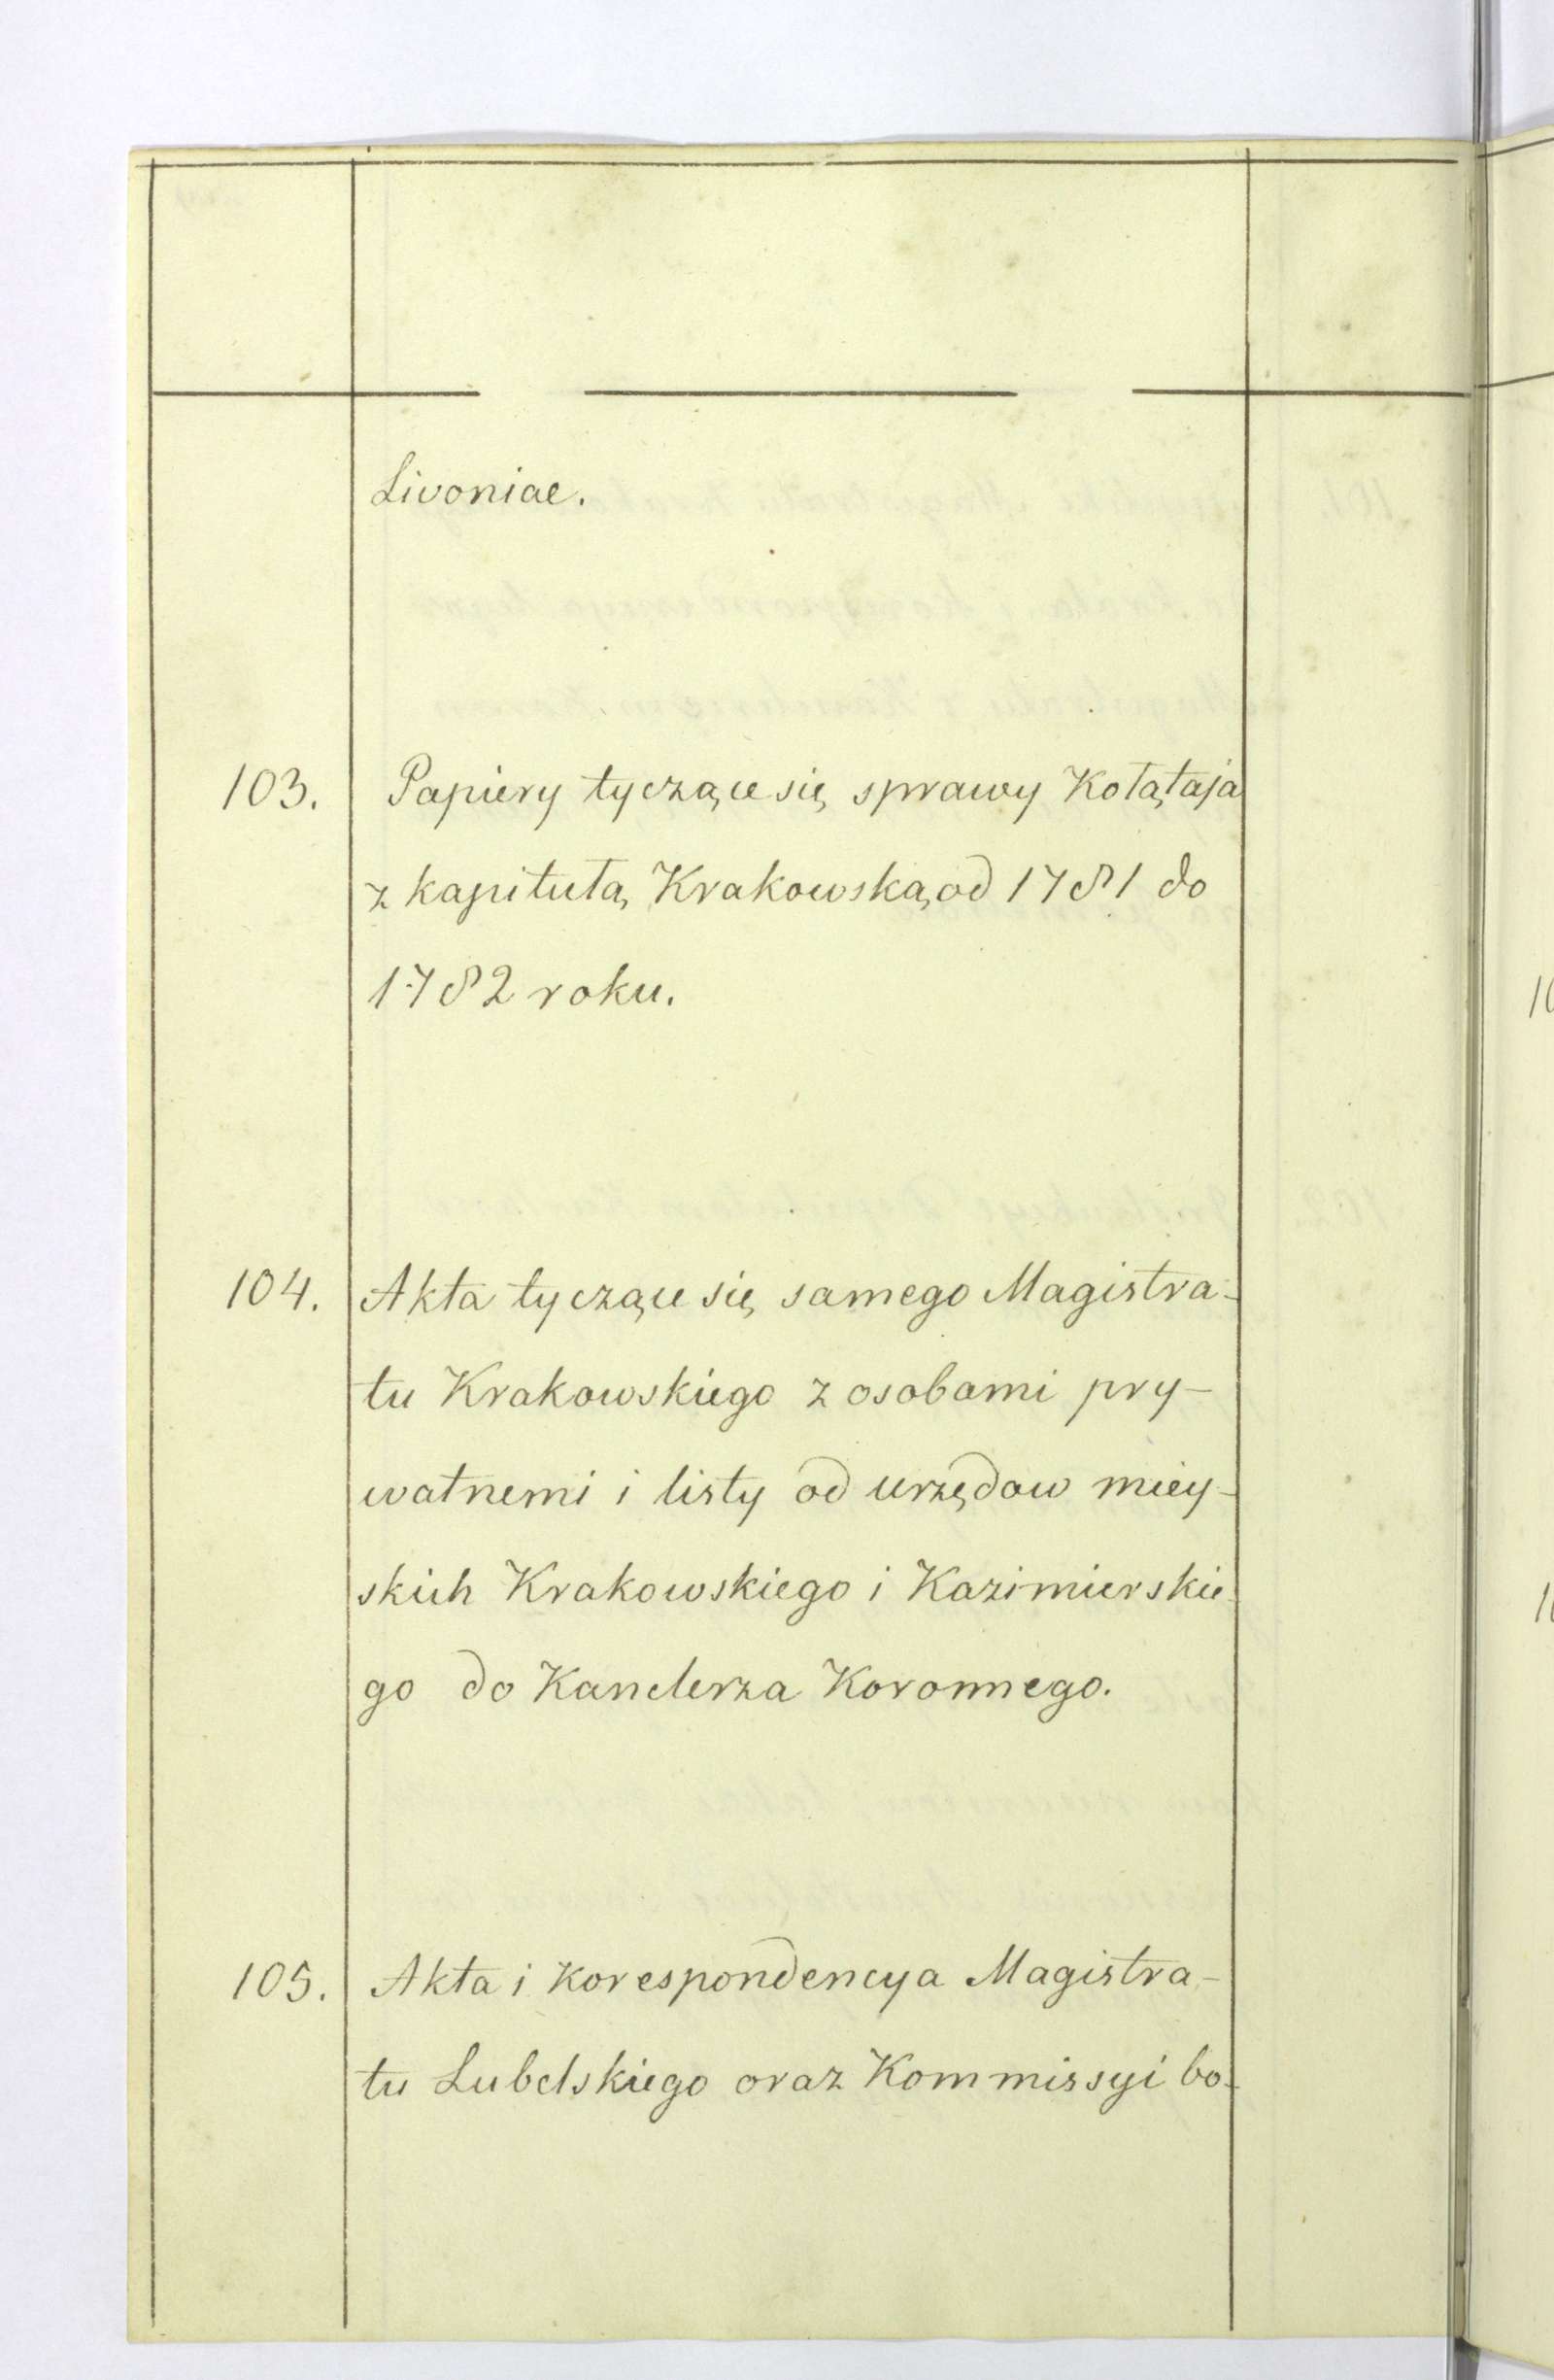 Livoniae.
103. Papiery tyczące się sprawy Kołątaja
z kapitułą Krakowską od 1781 do
1782 roku.
104. Akta tyczące się samego Magistra-
tu Krakowskiego z osobami pry-
watnemi i listy od urzędow miey-
skich Krakowskiego i Kazimierskie-
go do Kanclerza Koronnego.
105. Akta i korespondencya Magistra-
tu Lubelskiego oraz Kommissyi bo-